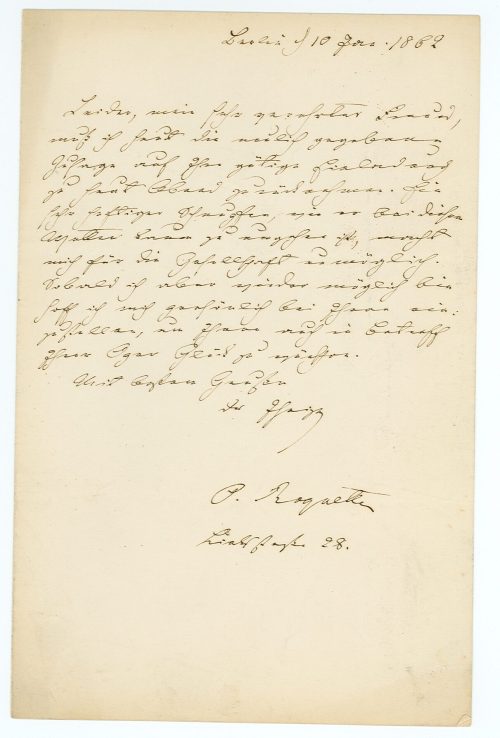 Berlin d 10 Jan. 1862
Leider, mein sehr geehrter Freund,
muß ich heut die neulich gegebene
Zusage auf Ihre gütige Einladung
zu heut Abend zurücknehmen. Ein
sehr heftiger Schnupfen, wie er bei diesem
Wetter kaum zu umgehen ist, macht
mich für die Gesellschaft unmöglich.
Sobald ich aber wieder möglich bin
hoff ich mich persönlich bei Ihnen ein:
zustellen, um Ihnen auch in Betreff
Ihrer Oper Glück zu wünschen.
Mit besten Grüßen
der Ihrige
O. Roquette
Linkstraße 28.